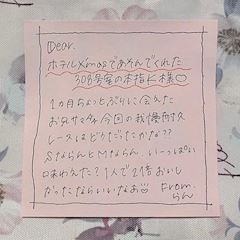 Dear.
ホテルXmasであそんでくれた
308号室の本指K様♡
1ヵ月ちょっとぶりに会えた
お兄サマ♡今回の我慢耐久
レースはどうだったかな??
SならんとMならん、いーっぱい
味わえた?1人で2倍おいし
かったならいいなあ
From.
らん